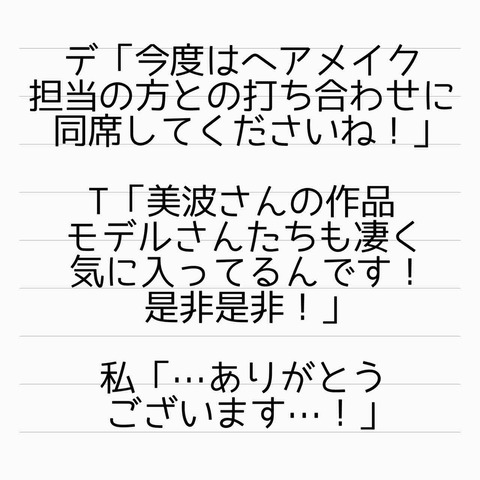 デ「今度はヘアメイク
担当の方との打ち合わせに
同席してくださいね！」
T「美波さんの作品
モデルさんたちも凄く
気に入ってるんです！
是非是非！」
私「…ありがとう
ございます…！」